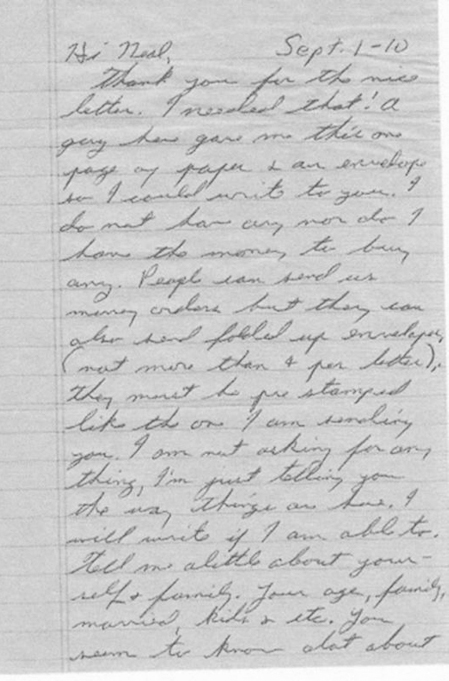 Hi Neal, Sept. 1-10
Thank you for the nice
letter. I needed that! A
guy here gave me this one
page of paper & an envelope
so I could write to you. I
do not have any nor do I
have the money to buy
any. People can send us
money orders but they can
also send folded up envelopes,
(not more than 4 per letter),
they must be pre stamped
like the one I am sending
you. I am not asking for any
thing, I'm just telling you
the way things are here. I
will write if I am able to.
Tell me alittle about your-
self & family. Your age, family,
married, kids & etc. You
seem to know alot about